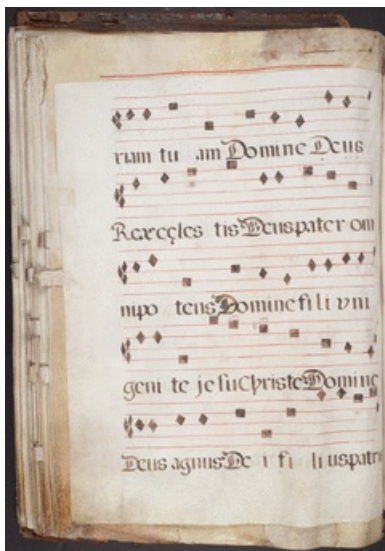 riam tu am Domine Deus
Rex celes tis Deus pater om
nipo tens Domine fi li vni
geni te je su Christe Domine
Deus agnus De i fi li us patris